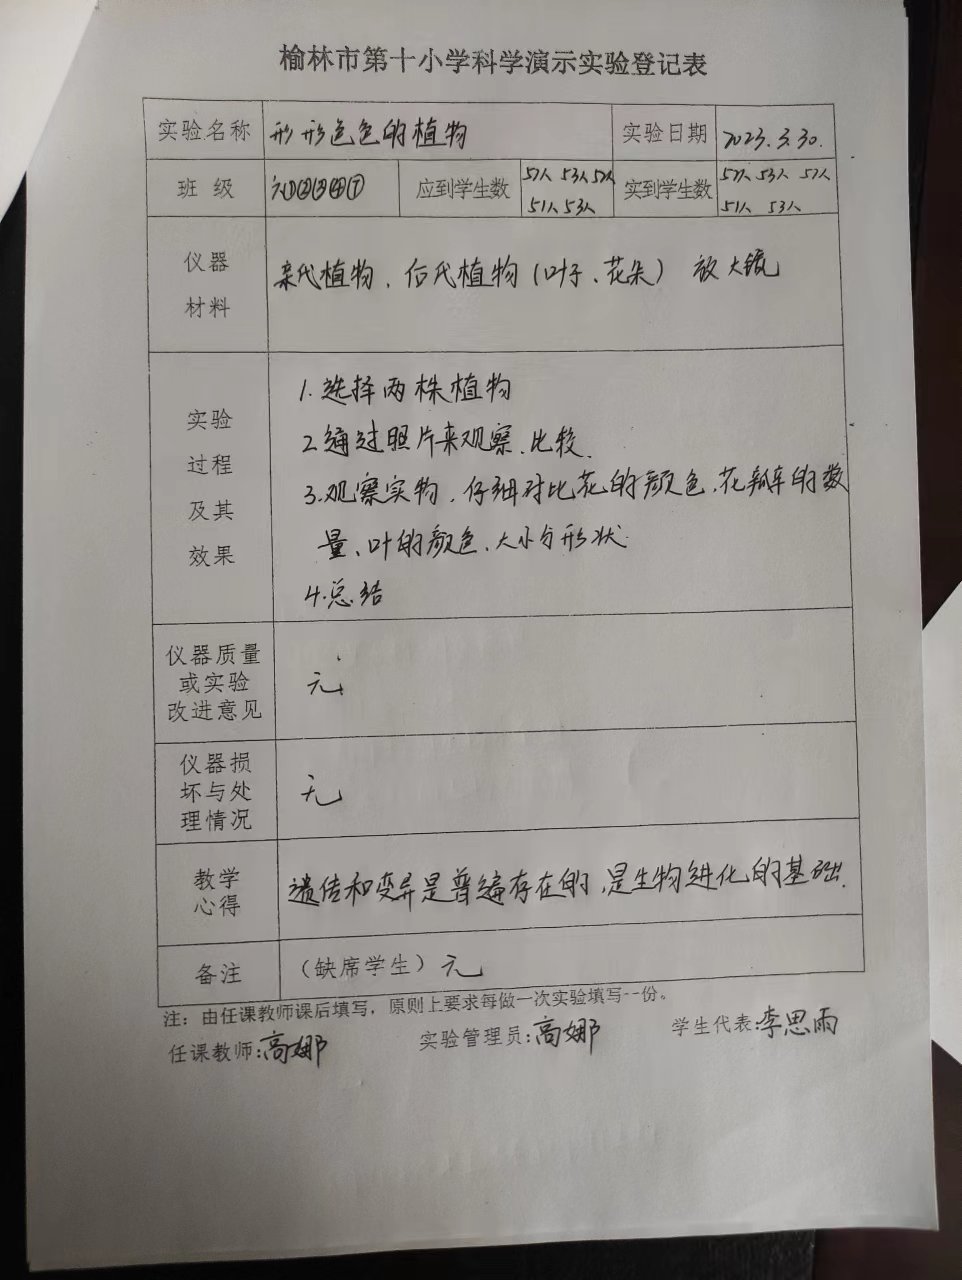 榆林市第十小学科学演示实验登记表
实验名称 形形色色的植物 实验日期 2023.3.30.
班级 ①②③④⑦ 应到学生数 57人 53人 57人 实到学生数 57人 53人 57人
51人 53人 51人 53人
仪器
材料
亲代植物、后代植物(叶子、花朵) 放大镜
实验
过程
及其
效果
1.选择两株植物
2.通过照片来观察、比较.
3.观察实物,仔细对比花的颜色,花瓣的数
量、叶的颜色、大小与形状.
4.总结
仪器质量
或实验
改进意见
无
仪器损
坏与处
理情况
无
教学
心得
遗传和变异是普遍存在的,是生物进化的基础.
备注 (缺席学生)无
注:由任课教师课后填写,原则上要求每做一次实验填写一份。
任课教师:高娜 实验管理员:高娜 学生代表:李思雨